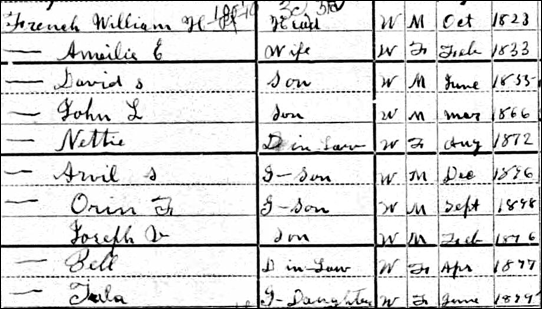 French William H Head W M Oct 1823
— Amelie E Wife W F Feb 1833
— David S Son W M June 1855
— John L Son W M Mar 1866
— Nettie D in Law W F Aug 1872
— Arvil S G-Son W M Dec 1896
— Orin F G-Son W M Sept 1898
Joseph V Son W M Feb 1876
— Bell D in-Law W F Apr 1877
— Tula G-Daughter W F June 1899